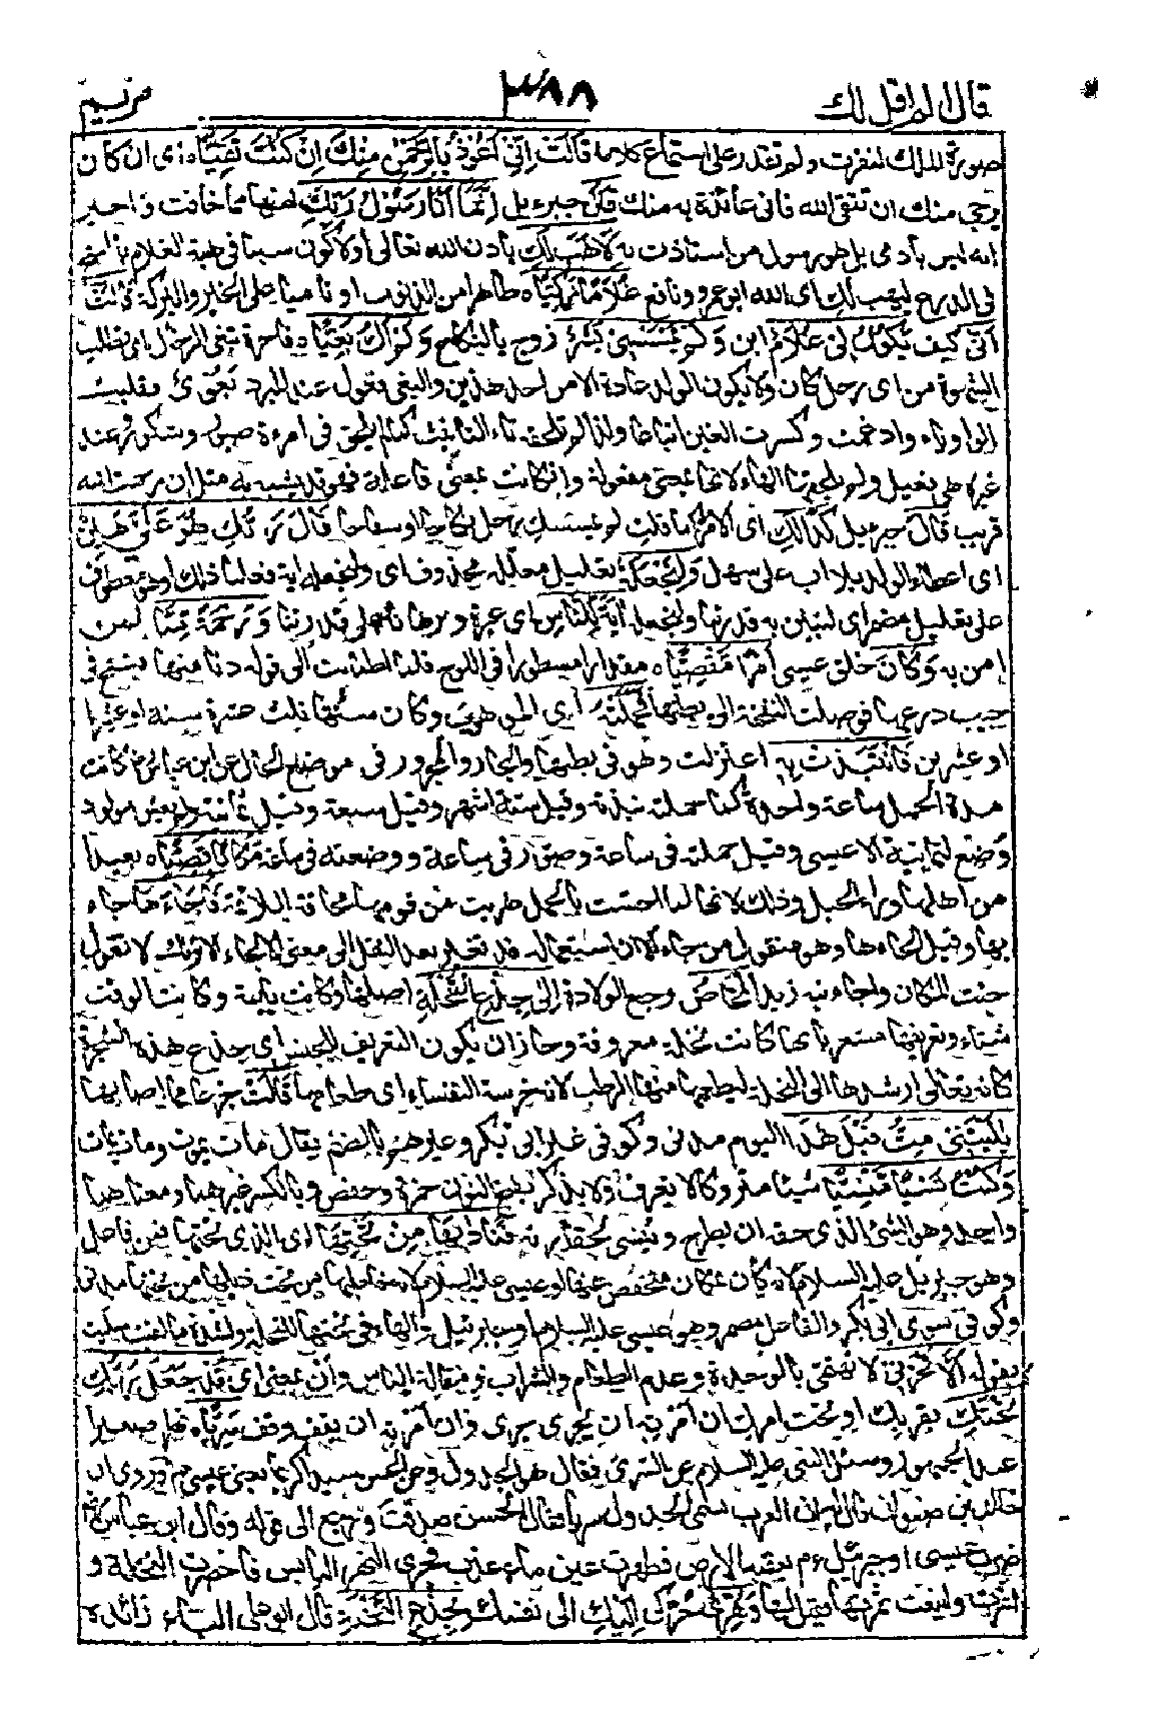 قال الم اقل لك ٣٨٨ مريم
صورة الملك لنفرت ولم تقدر على استماع كلامه قَالَتْ اِنِّي اَعُوْذُ بِالرَّحْمٰنِ مِنْكَ اِنْ كُنْتَ تَقِيًّا ه اى ان كان
يرجى منك ان تتقى الله فانى عائذة به منك قَالَ جبرءيل اِنَّمَا اَنَا رَسُوْلُ رَبِّكِ امنها مما خافت واخبر
انه ليس بآدمى بل هو رسول من استعاذت به لِاَهَبَ لَكِ باذن الله تعالى او لاكون سببا فى هبة الغلام بالنفخ
فى الدرع ليهب لك اى الله ابو عمرو ونافع غُلٰمًا زَكِيًّا ه طاهرا من الذنوب او ناميا على الخير والبركة قَالَتْ
اَنّٰى كيف يَكُوْنُ لِيْ غُلٰمٌ ابن وَّلَمْ يَمْسَسْنِيْ بَشَرٌ زوج بالنكاح وَّلَمْ اَكُ بَغِيًّا ه فاجرة تبغى الرجال اى تطلب
الشهوة من اى رجل كان ولا يكون الولد عادة الا من احد هذين والبغى فعول عند المبرد بغوى فقلبت
الواو ياء وادغمت وكسرت الغين اتباعا ولذا لم تلحقه تاء التانيث كما لم يلحق فى امرءة صبور وشكور وعند
غيره هى فعيل ولم تلحقها الهاء لانها بمعنى مفعولة وان كانت بمعنى فاعلة فهو قد يشبه به مثل ان رحمت الله
قريب قَالَ جبرءيل كَذٰلِكِ اى الامر كما قلت لم يمسسك رجل نكاحا او سفاحا قَالَ رَبُّكِ هُوَ عَلَيَّ هَيِّنٌ
اى اعطاء الولد بلا اب على سهل وَلِنَجْعَلَهٗ تعليل معلله محذوف اى ولنجعله اية فعلنا ذلك او هو معطوف
على تعليل مضمر اى لنبين به قدرتنا ولنجعله اٰيَةً لِّلنَّاسِ اى عبرة وبرهانا على قدرتنا وَرَحْمَةً مِّنَّا لمن
امن به وَكَانَ خلق عيسى اَمْرًا مَّقْضِيًّا ه مقدرا مسطورا فى اللوح فلما اطمانت الى قوله دنا منها فنفخ فى
جيب درعها فوصلت النفخة الى بطنها فَحَمَلَتْهُ اى الموهوب وكان سنها ثلث عشرة سنة او عشرا
او عشرين فَانْتَبَذَتْ بِهٖ اعتزلت وهو فى بطنها والجار والمجرور فى موضع الحال عن ابن عباس رض كانت
مدة الحمل ساعة واحدة كما حملته نبذته وقيل ستة اشهر وقيل سبعة وقيل ثمانية ولم يعش مولود
وضع لثمانية الا عيسى وقيل حملته فى ساعة وصور فى ساعة ووضعته فى ساعة مَكَانًا قَصِيًّا ه بعيدا
من اهلها وراء الجبل وذلك لانها لما احست بالحمل هربت من قومها مخافة اللائمة فَاَجَآءَهَا جاء
بها وقيل الجاءها وهو منقول من جاء الا ان استعماله قد تغير بعد النقل الى معنى الالجاء الا تراك لا تقول
جئت المكان واجاءنيه زيد الْمَخَاضُ وجع الولادة اِلٰى جِذْعِ النَّخْلَةِ اصلها وكانت يابسة وكانت الوقت
شتاء وتعريفها مشعر بانها كانت نخلة معروفة وجاز ان يكون التعريف للجنس اى جذع هذه الشجرة
كانه تعالى ارشدها الى النخلة ليطعمها منها الرطب لانه خرسة النفساء اى طعامها قَالَتْ جزعا مما اصابها
يٰلَيْتَنِيْ مِتُّ قَبْلَ هٰذَا اليوم مدنى وكوفى غير ابى بكر وغيرهم بالضم يقال مات يموت ومات يمات
وَكُنْتُ نَسْيًا مَّنْسِيًّا شيئا متروكا لا يعرف ولا يذكر بفتح النون حمزة وحفص وبالكسر غيرهما ومعناهما
واحد وهو الشئ الذى حقه ان يطرح وينسى لحقارته فَنَادٰىهَا مِنْ تَحْتِهَا اى الذى تحتها فمن فاعل
وهو جبريل عليه السلام لانه كان بمكان منخفض عنها او عيسى عليه السلام لانه خاطبها من تحت ذيلها من تحتها مدنى
وكوفى سوى ابى بكر والفاعل مضمر وهو عيسى عليه السلام او جبرئيل والهاء فى تحتها للنخلة ولشدة ما لقيت سليت
بقوله اَلَّا تَحْزَنِيْ لا تهتمى بالوحدة وعدم الطعام والشراب ومقالة الناس وان بمعنى اى قَدْ جَعَلَ رَبُّكِ
تَحْتَكِ بقربك او تحت امرك ان امرته ان يجرى جرى وان امرته ان يقف وقف سَرِيًّا ه نهرا صغيرا
عند الجمهور وسئل النبى عليه السلام عن السرى فقال هو الجدول وعن الحسن سيدا كريما يعنى عيسى عم وروى ان
خالد بن صفوان قال له ان العرب تسمى الجدول سريا فقال الحسن صدقت ورجع الى قوله وقال ابن عباس رض
ضرب عيسى او جبرئيل عم بعقبه الارض فظهرت عين ماء عذب فجرى النهر اليابس فاخضرت النخلة و
اثمرت واينعت ثمرتها فقيل لها وَهُزِّيْ حركى اِلَيْكِ الى نفسك بِجِذْعِ النَّخْلَةِ قال ابو على الباء زائدة